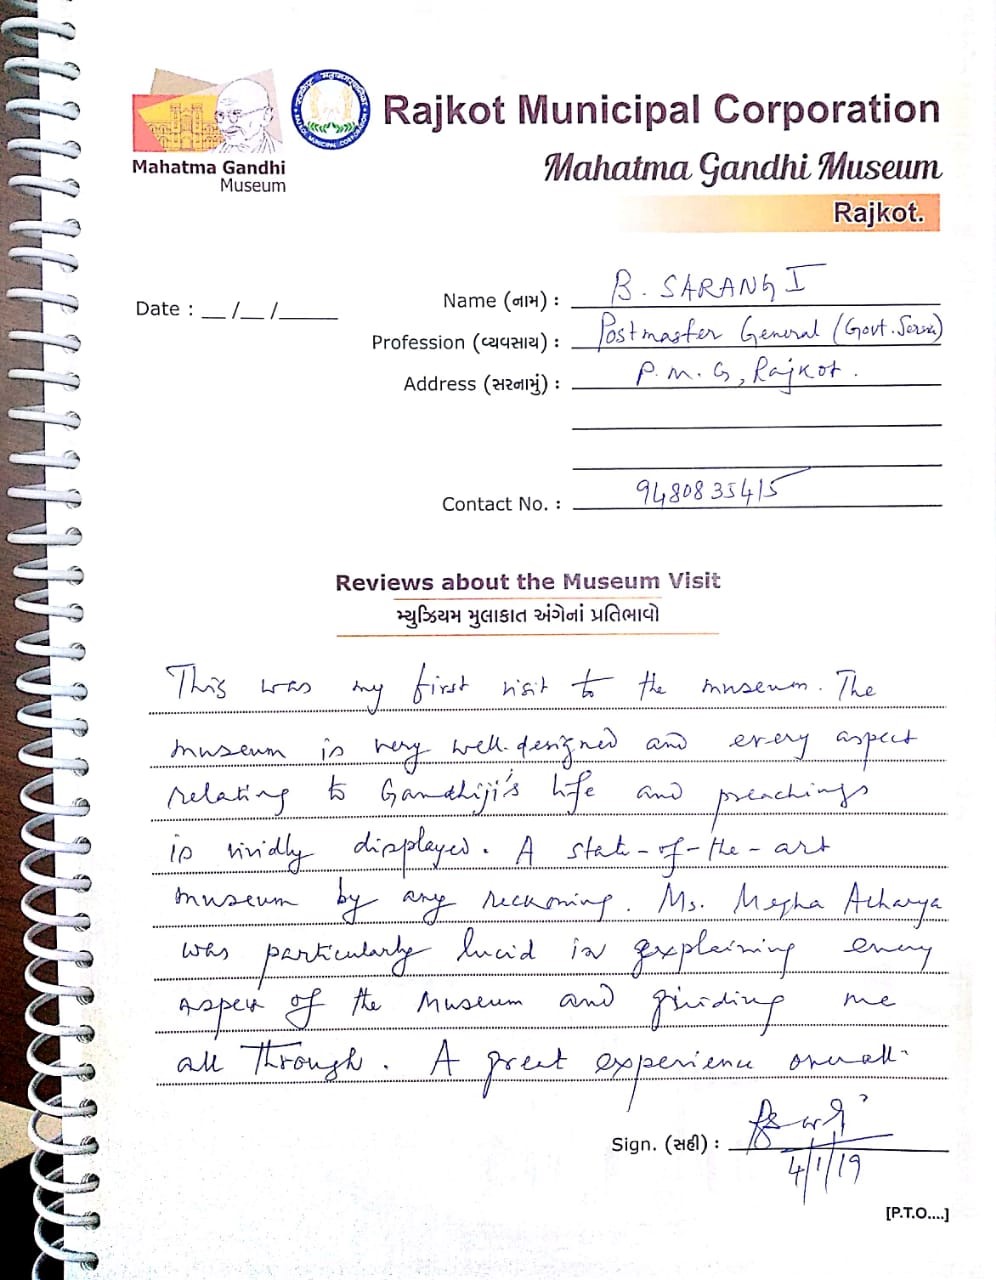 Rajkot Municipal Corporation
Mahatma Gandhi Museum
Mahatma Gandhi Museum
Rajkot.
Date : __ /__ /_____
Name (નામ) : B. SARANGI
Profession (વ્યવસાય) : Postmaster General (Govt. Service)
Address (સરનામું) : P.M.G, Rajkot.
Contact No. : 9480835415
Reviews about the Museum Visit
મ્યુઝિયમ મુલાકાત અંગેનાં પ્રતિભાવો
This was my first visit to the museum. The
museum is very well-designed and every aspect
relating to Gandhiji's life and preachings
is vividly displayed. A state-of-the-art
museum by any reckoning. Ms. Megha Acharya
was particularly lucid in explaining every
aspect of the Museum and guiding me
all through. A great experience overall.
Sign. (સહી) :
4/1/19
[P.T.O....]